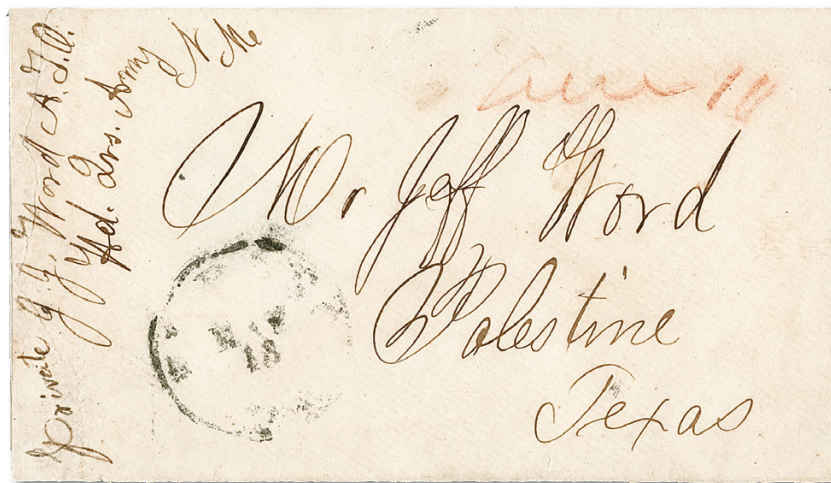 Private J. J. Word A.J.O.
Hd. Qrs. Army
N Me
Due 10
Mr Jeff Word
Palestine
Texas
18